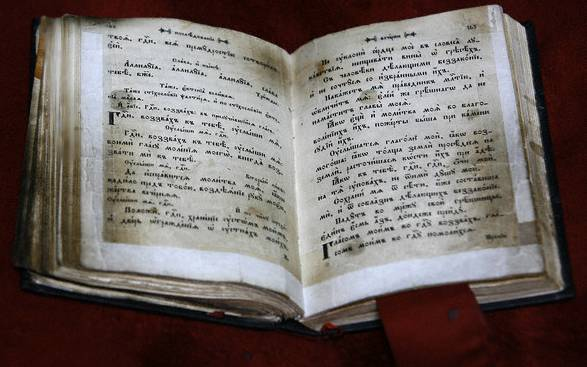 твоя̀, гдⷭ҇и, всѧ̑ премⷣростїю сотвори́лъ
є҆сѝ.
Сла́ва, и҆ ны́нѣ:
А҆ллилꙋ́їа, а҆ллилꙋ́їа, а҆ллилꙋ́їа, сла́ва
тебѣ̀, бж҃е.
Гдⷭ҇и, воззва́хъ къ тебѣ̀, ᲂу҆слы́ши мѧ̀.
ᲂу҆слы́ши мѧ̀, гдⷭ҇и.
Гдⷭ҇и, воззва́хъ къ тебѣ̀, ᲂу҆слы́ши мѧ̀:
вонмѝ гла́сꙋ моле́нїѧ моегѡ̀, внегда̀ воз-
зва́ти мѝ къ тебѣ̀.
ᲂу҆слы́ши мѧ̀, гдⷭ҇и.
Да и҆спра́витсѧ моли́тва моѧ̀, ꙗ҆́кѡ
кади́ло пред̾ тобо́ю, воздѣѧ́нїе рꙋкꙋ̀ моє́ю
же́ртва вече́рнѧѧ.
ᲂу҆слы́ши мѧ̀, гдⷭ҇и.
Положѝ, гдⷭ҇и, хране́нїе ᲂу҆стѡ́мъ мои̑мъ,
и҆ две́рь ѡ҆гражде́нїѧ ѡ҆ ᲂу҆стна́хъ мои́хъ.
вечерни
Не ᲂу҆клонѝ се́рдце моѐ въ словеса̀ лꙋ-
ка́вствїѧ, непщева́ти вины̑ ѡ҆ грѣсѣ́хъ.
Съ человѣ̑ки дѣ́лающими беззако́нїе,
и҆ не сочтꙋ́сѧ со и҆збра́нными и҆́хъ.
Нака́жетъ мѧ̀ пра́ведникъ ми́лостїю, и҆
ѡ҆бличи́тъ мѧ̀, є҆ле́й же грѣ́шнагѡ да не
нама́ститъ главы̀ моеѧ̀.
Ꙗ҆́кѡ є҆щѐ и҆ моли́тва моѧ̀ во благо-
воле́нїихъ и҆́хъ, поже́рты бы́ша при ка́мени
сꙋдїи̑ и҆́хъ.
ᲂу҆слы́шатсѧ глаго́ли моѝ, ꙗ҆́кѡ воз-
мого́ша: ꙗ҆́кѡ то́лща землѝ просѣ́десѧ на
землѝ, расточи́шасѧ кѡ́сти и҆́хъ при а҆́дѣ.
Ꙗ҆́кѡ къ тебѣ̀, гдⷭ҇и, гдⷭ҇и, ѻ҆́чи моѝ:
на тѧ̀ ᲂу҆пова́хъ, не ѿимѝ дꙋ́шꙋ мою̀.
Сохрани́ мѧ ѿ сѣ́ти, ю҆́же соста́виша
мѝ, и҆ ѿ собла̑знъ дѣ́лающихъ беззако́нїе.
Падꙋ́тъ во мре́жꙋ свою̀ грѣ̑шницы:
є҆ди́нъ є҆́смь а҆́зъ, до́ндеже прейдꙋ̀.
Гла́сомъ мои́мъ ко гдⷭ҇ꙋ воззва́хъ, гла́-
сомъ мои́мъ ко гдⷭ҇ꙋ помоли́хсѧ.